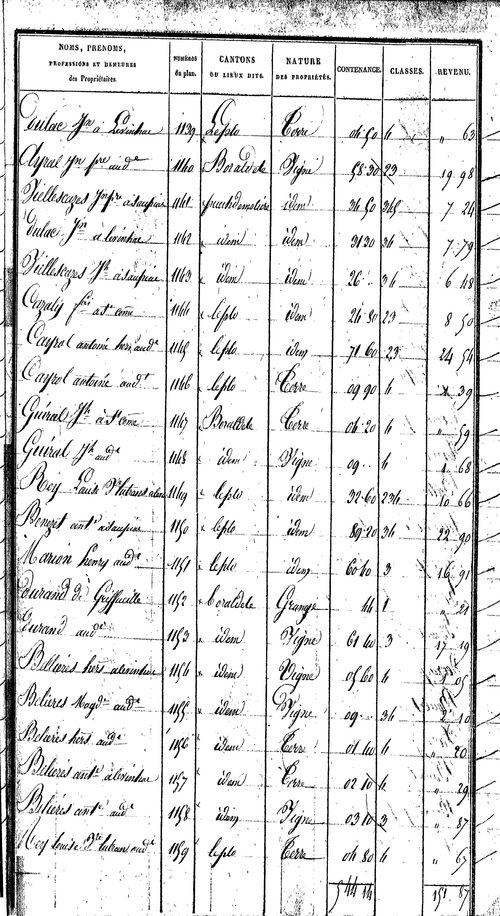 NOMS, PRENOMS, PROFESSIONS ET DEMEURES des Propriétaires. NUMÉROS du plan. CANTONS OU LIEUX DITS. NATURE DES PROPRIÉTÉS. CONTENANCE. CLASSES. REVENU.
Dulac Jn à Lévinhac 1139 Leplo Terre 04 50 4 " 63
Ayral Jn pre aude 1140 Boraldete Vigne 58 30 23 19 98
Vieillescazes 1141 puech idem 34 50 345 7 24
Dulac Jn à lévinhac 1142 idem idem 31 30 34 7 79
Vieillescazes Jh 1143 idem idem 26 " 34 6 48
à St Côme 1144 leplo idem 24 80 23 8 50
Cayrol antoine hers aude 1145 leplo idem 71 60 23 24 54
Cayrol antoine audt 1146 leplo Terre 09 90 4 1 39
Guiral Jh à St Côme 1147 Boraldete Terre 04 20 4 " 59
Guiral Jh aude 1148 idem Vigne 09 " 4 1 68
Rey Louis 1149 leplo idem 32 60 234 10 66
Benezet ante 1150 leplo idem 89 20 34 22 90
Marion henry aude 1151 leplo idem 60 40 3 16 91
Durand de Griffueille 1152 boraldete Grange 44 1 " 21
Durand aude 1153 idem Vigne 61 40 3 17 19
Bélières hers à lévinhac 1154 idem Vigne 05 60 4 05
Bélieres Magde aude 1155 idem Vigne 09 " 34 2 10
Belieres hers aude 1156 idem Terre 01 40 4 " 20
Bélieres ante à lévinhac 1157 idem Terre 02 10 4 " 29
Bélieres ante aude 1158 idem Vigne 03 10 3 " 87
Rey Louis aude 1159 leplo Terre 04 80 4 " 67
544 14 151 87